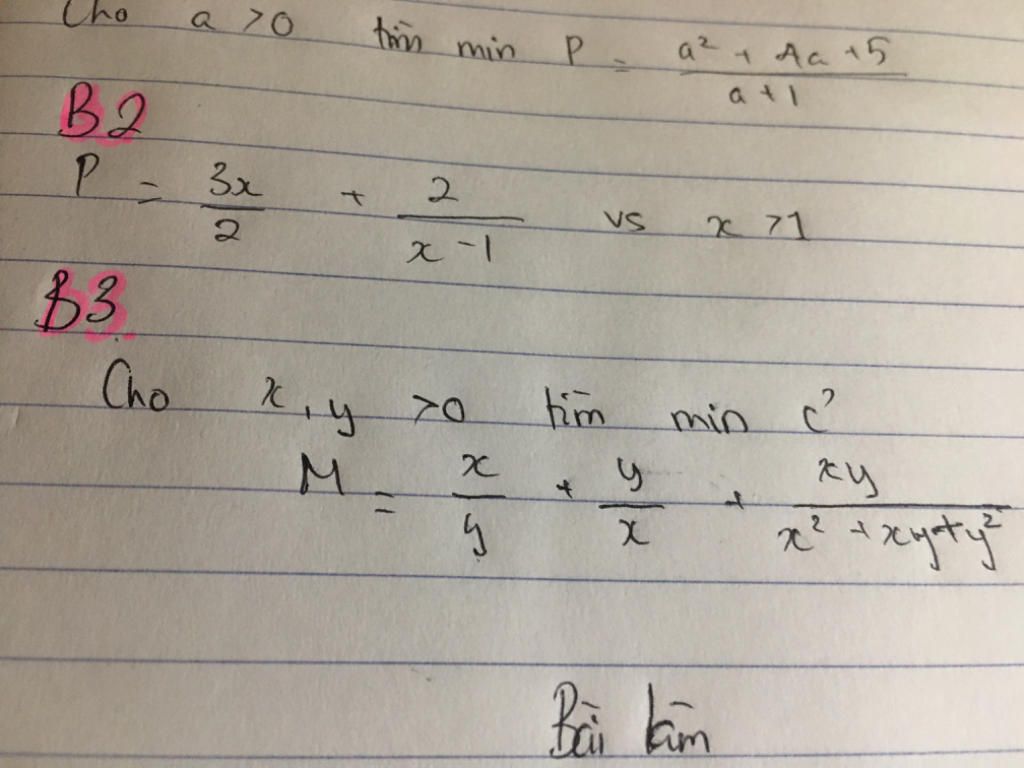 Cho a > 0 tìm min P = (a² + 4a + 5)/(a + 1)
B2
P = 3x/2 + 2/(x - 1) vs x > 1
B3
Cho x, y > 0 tìm min c?
M = x/y + y/x + xy/(x² + xy + y²)
Bài làm